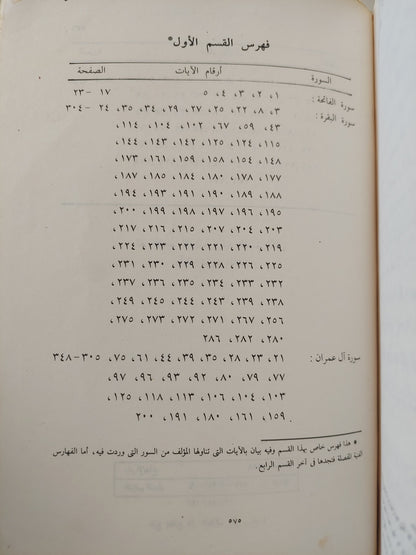 فهرس القسم الأول*
السورة أرقام الآيات الصفحة
سورة الفاتحة : ١، ٢، ٣، ٤، ٥ ١٧ -٢٣
سورة البقرة : ٣، ٨، ٢٢، ٢٥، ٢٧، ٢٩، ٣٤، ٣٥، ٢٤ -٣٠٤
٤٣، ٥٩، ٦٧، ١٠٢، ١٠٤، ١١٤،
١١٥، ١٢٤، ١٢٦، ١٤٢، ١٤٣، ١٤٤،
١٤٨، ١٥٤، ١٥٨، ١٥٩، ١٦١، ١٧٣،
١٧٧، ١٧٨، ١٨٠، ١٨٤، ١٨٥، ١٨٧،
١٨٨، ١٨٩، ١٩٠، ١٩١، ١٩٣، ١٩٤،
١٩٥، ١٩٦، ١٩٧، ١٩٨، ١٩٩، ٢٠٠،
٢٠٣، ٢٠٤، ٢٠٧، ٢١٥، ٢١٦، ٢١٧،
٢١٩، ٢٢٠، ٢٢١، ٢٢٢، ٢٢٣، ٢٢٤،
٢٢٥، ٢٢٦، ٢٢٨، ٢٢٩، ٢٣٠، ٢٣١،
٢٣٢، ٢٣٣، ٢٣٤، ٢٣٥، ٢٣٦، ٢٣٧،
٢٣٨، ٢٣٩، ٢٤٠، ٢٤٣، ٢٤٥، ٢٤٩،
٢٥٦، ٢٦٧، ٢٧١، ٢٧٢، ٢٧٣، ٢٧٥،
٢٨٠، ٢٨٢، ٢٨٦
سورة آل عمران : ٢١، ٢٣، ٢٨، ٣٥، ٣٩، ٤٤، ٦١، ٧٥، ٣٠٥-٣٤٨
٧٧، ٧٩، ٨٠، ٩٢، ٩٣، ٩٦، ٩٧،
١٠٣، ١٠٤، ١٠٦، ١١٣، ١١٨، ١٢٥،
١٥٩، ١٦١، ١٨٠، ١٩١، ٢٠٠
* هذا فهرس خاص بهذا القسم وفيه بيان بالآيات التى تناولها المؤلف من السور التى وردت فيه، أما الفهارس
الفنية المفصلة فتجدها فى آخر القسم الرابع.
٥٧٥